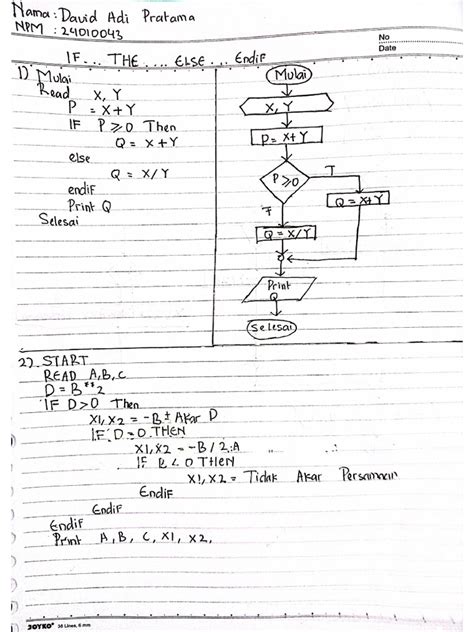 Nama : David Adi Pratama
NPM : 24010043
No
Date
IF... THE .... ELSE ... Endif
1) Mulai
Read X, Y
P = X+Y
IF P≥0 Then
Q = X+Y
else
Q = X/Y
endif
Print Q
Selesai
Mulai
X, Y
P= X+Y
P≥0
T
Q = X+Y
F
Q = X/Y
Print
Q
Selesai
2) START
READ A,B,C
D = B**2
IF D>0 Then
X1, X2 = -B ± Akar D
IF D=0 THEN
X1, X2 = -B / 2.A
IF < 0 THEN
X1, X2 = Tidak Akar Persamaan
Endif
Endif
Endif
Print A, B, C, X1, X2.
JOYKO 38 Lines, 6 mm